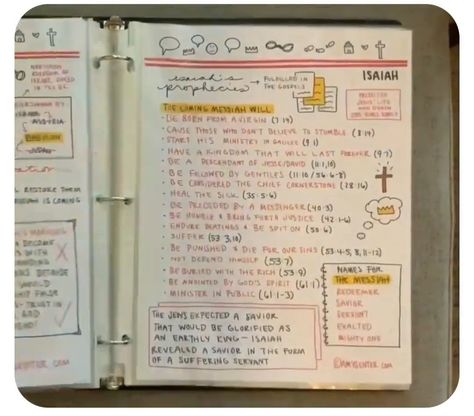 KINGDOM OF
RESTORE THEM
IS COMING
BECOME
IS WITH
SHOULD
TRUST IN
ISAIAH
isaiah's
prophecies
FULFILLED IN
THE GOSPELS
THE COMING MESSIAH WILL
- BE BORN FROM A VIRGIN (7:14)
- CAUSE THOSE WHO DON'T BELIEVE TO STUMBLE (8:14)
- START HIS MINISTRY IN GALILEE (9:1)
- HAVE A KINGDOM THAT WILL LAST FOREVER (9:7)
- BE A DESCENDANT OF JESSE/DAVID (11:1,10)
- BE FOLLOWED BY GENTILES (11:10 / 56:6-8)
- BE CONSIDERED THE CHIEF CORNERSTONE (28:16)
- HEAL THE SICK (35:5-6)
- BE PRECEDED BY A MESSENGER (40:3)
- BE HUMBLE & BRING FORTH JUSTICE (42:1-6)
- ENDURE BEATINGS & BE SPIT ON (50:6)
- SUFFER (53:3,10)
- BE PUNISHED & DIE FOR OUR SINS (53:4-5, 8, 11-12)
- NOT DEFEND HIMSELF (53:7)
- BE BURIED WITH THE RICH (53:9)
- BE ANOINTED BY GOD'S SPIRIT (61:1)
- MINISTER IN PUBLIC (61:1-3)
NAMES FOR
THE MESSIAH
REDEEMER
SAVIOR
SERVANT
EXALTED
MIGHTY ONE
THE JEWS EXPECTED A SAVIOR
THAT WOULD BE GLORIFIED AS
AN EARTHLY KING - ISAIAH
REVEALED A SAVIOR IN THE FORM
OF A SUFFERING SERVANT